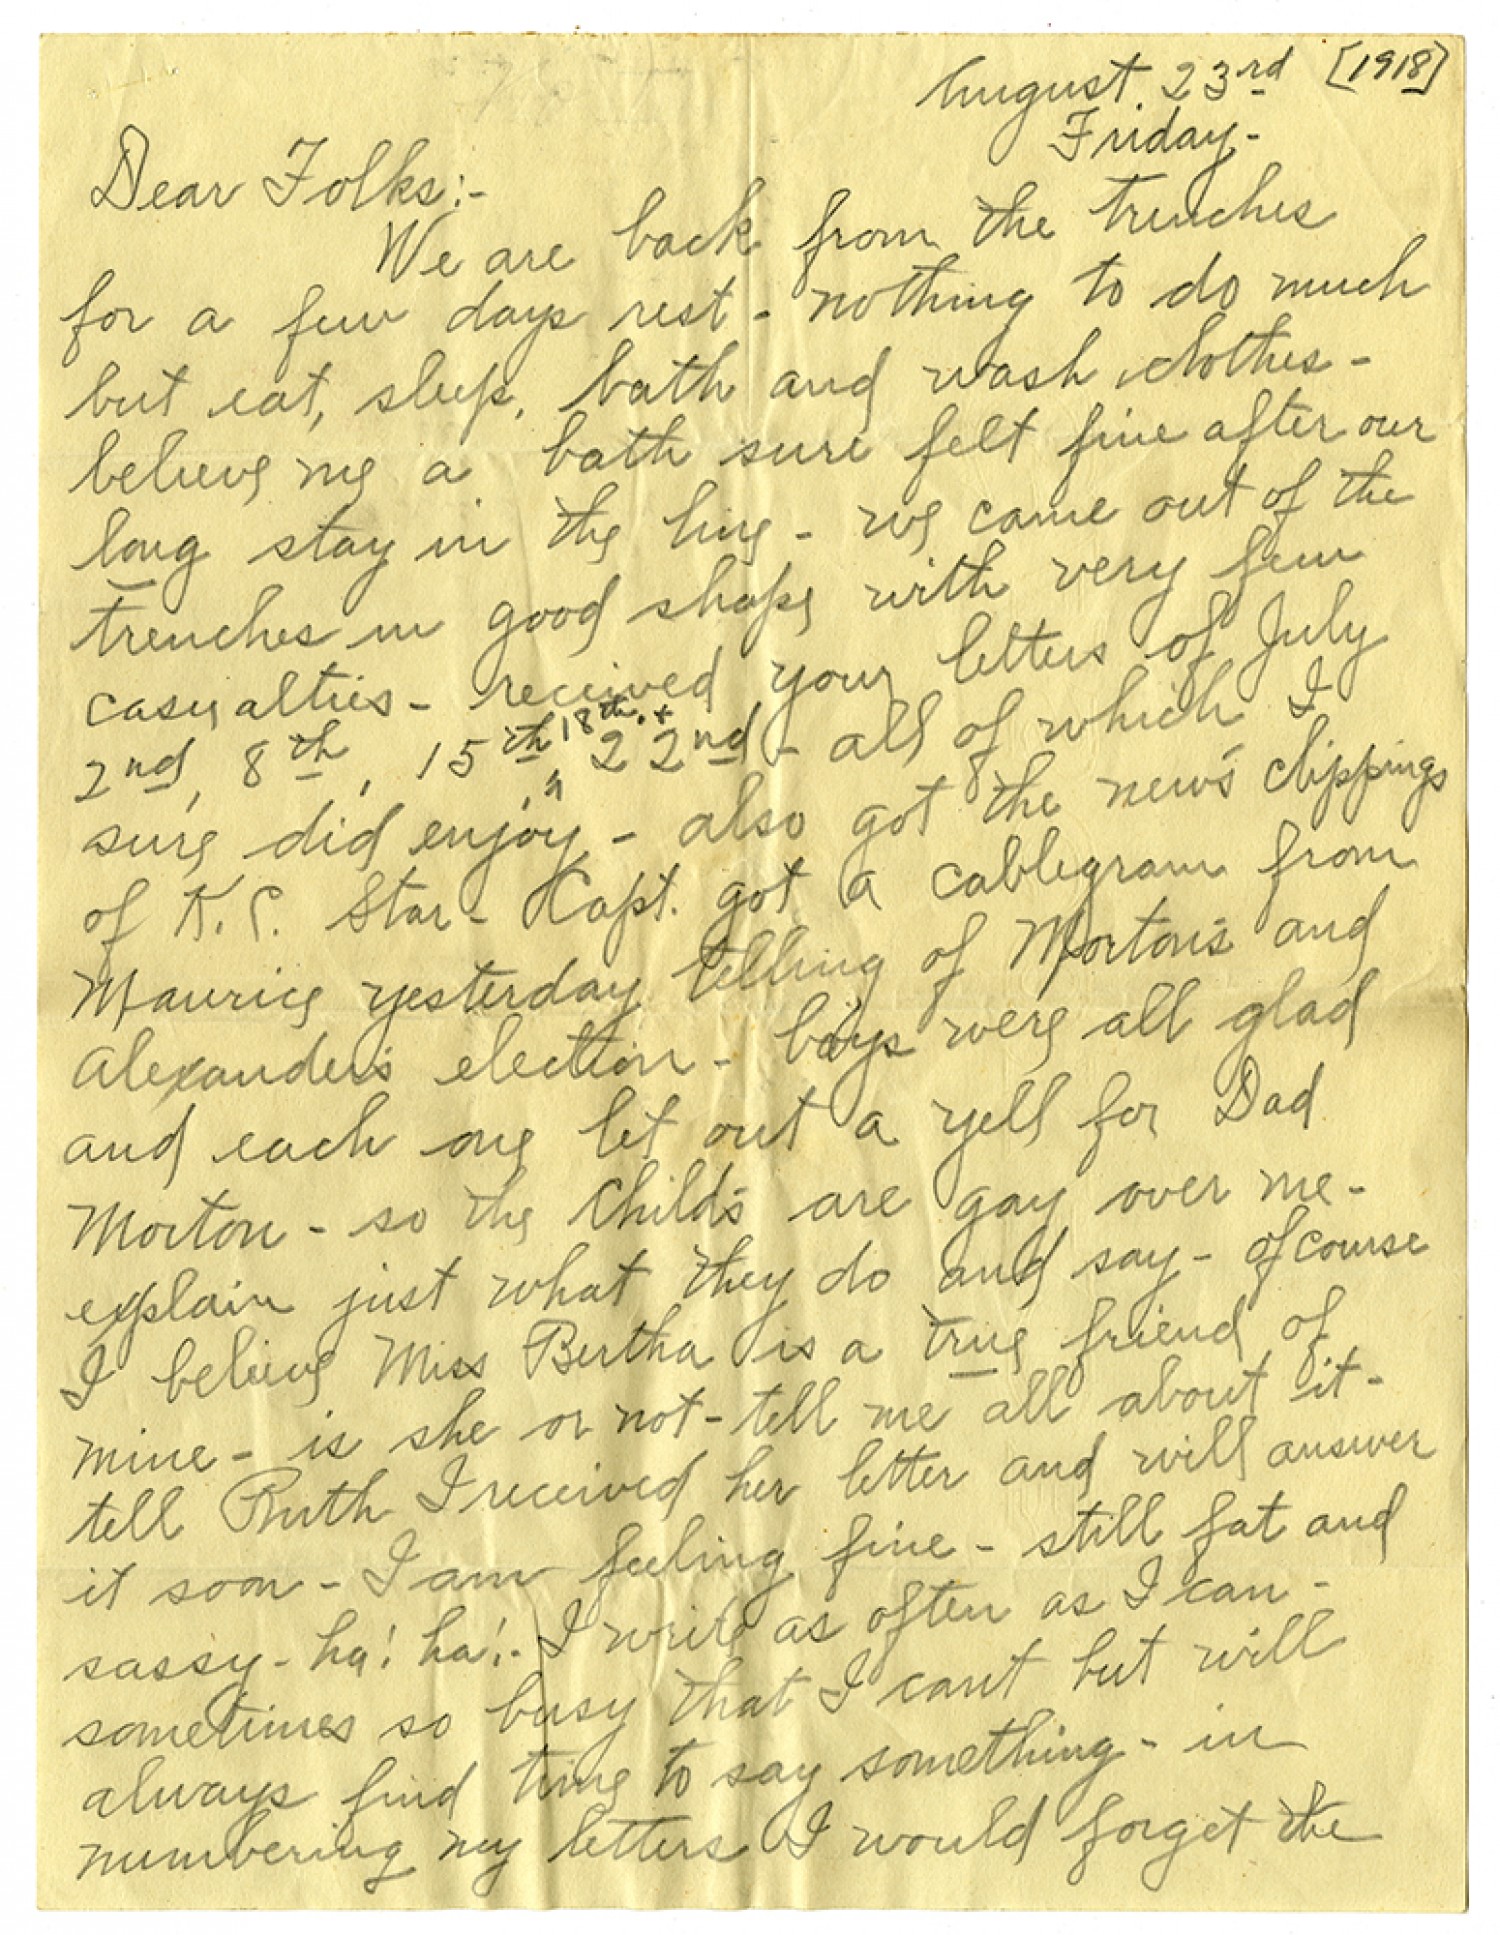 August 23rd [1918]
Friday-
Dear Folks:-
We are back from the trenches
for a few days rest - nothing to do much
but eat, sleep, bath and wash clothes -
believe me a bath sure felt fine after our
long stay in the line - we came out of the
trenches in good shape with very few
casualties - received your letters of July
2nd, 8th, 15th, 18th, + 22nd - all of which I
sure did enjoy - also got the news clippings
of K.C. Star - Capt. got a cablegram from
Maurice yesterday telling of Morton's and
Alexander's election - boys were all glad
and each one let out a yell for Dad
Morton - so the Childs are gay over me -
explain just what they do and say - of course
I believe Miss Bertha is a true friend of
mine - is she or not - tell me all about it -
tell Ruth I received her letter and will answer
it soon - I am feeling fine - still fat and
sassy - ha! ha! - I write as often as I can -
sometimes so busy that I cant but will
always find time to say something - in
numbering my letters I would forget the